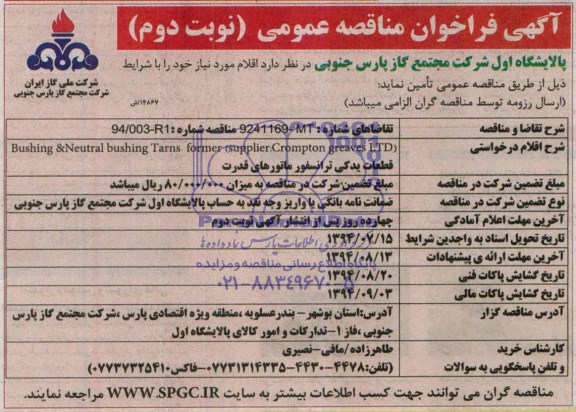 آگهی فراخوان مناقصه عمومی (نوبت دوم)
شرکت ملی گاز ایران
شرکت مجتمع گاز پارس جنوبی
۱۲۸۶۷/ش
پالایشگاه اول شرکت مجتمع گاز پارس جنوبی در نظر دارد اقلام مورد نیاز خود را با شرایط
ذیل از طریق مناقصه عمومی تأمین نماید:
(ارسال رزومه توسط مناقصه گران الزامی میباشد)
شرح تقاضا و مناقصه
تقاضاهای شماره : MT -9241169 مناقصه شماره : 94/003-R1
شرح اقلام درخواستی
Bushing &Neutral bushing Tarns former supplier:Crompton greaves LTD)
قطعات یدکی ترانسفور ماتورهای قدرت
مبلغ تضمین شرکت در مناقصه
مبلغ تضمین شرکت در مناقصه به میزان ۸۰/۰۰۰/۰۰۰ ریال میباشد
نوع تضمین شرکت در مناقصه
ضمانت نامه بانکی یا واریز وجه نقد به حساب پالایشگاه اول شرکت مجتمع گاز پارس جنوبی
آخرین مهلت اعلام آمادگی
چهارده روز پس از انتشار آگهی نوبت دوم
تاریخ تحویل اسناد به واجدین شرایط
۱۳۹۴/۰۷/۱۵
آخرین مهلت ارائه ی پیشنهادات
۱۳۹۴/۰۸/۱۳
تاریخ گشایش پاکات فنی
۱۳۹۴/۰۸/۲۰
تاریخ گشایش پاکات مالی
۱۳۹۴/۰۹/۰۳
پایگاه اطلاع رسانی مناقصه و مزایده
۰۲۱-۸۸۳۴۹۶۷۰-۵
آدرس مناقصه گزار
آدرس:استان بوشهر – بندرعسلویه ،منطقه ویژه اقتصادی پارس ،شرکت مجتمع گاز پارس
جنوبی ،فاز ۱-تدارکات و امور کالای پالایشگاه اول
کارشناس خرید
و تلفن پاسخگویی به سوالات
طاهرزاده/مافی-نصیری
(تلفن:۴۴۷۸-۴۴۳۰-۰۷۷۳۱۳۱۴۳۳۵-فاکس۰۷۷۳۷۳۲۵۴۱۰)
مناقصه گران می توانند جهت کسب اطلاعات بیشتر به سایت WWW.SPGC.IR مراجعه نمایند.